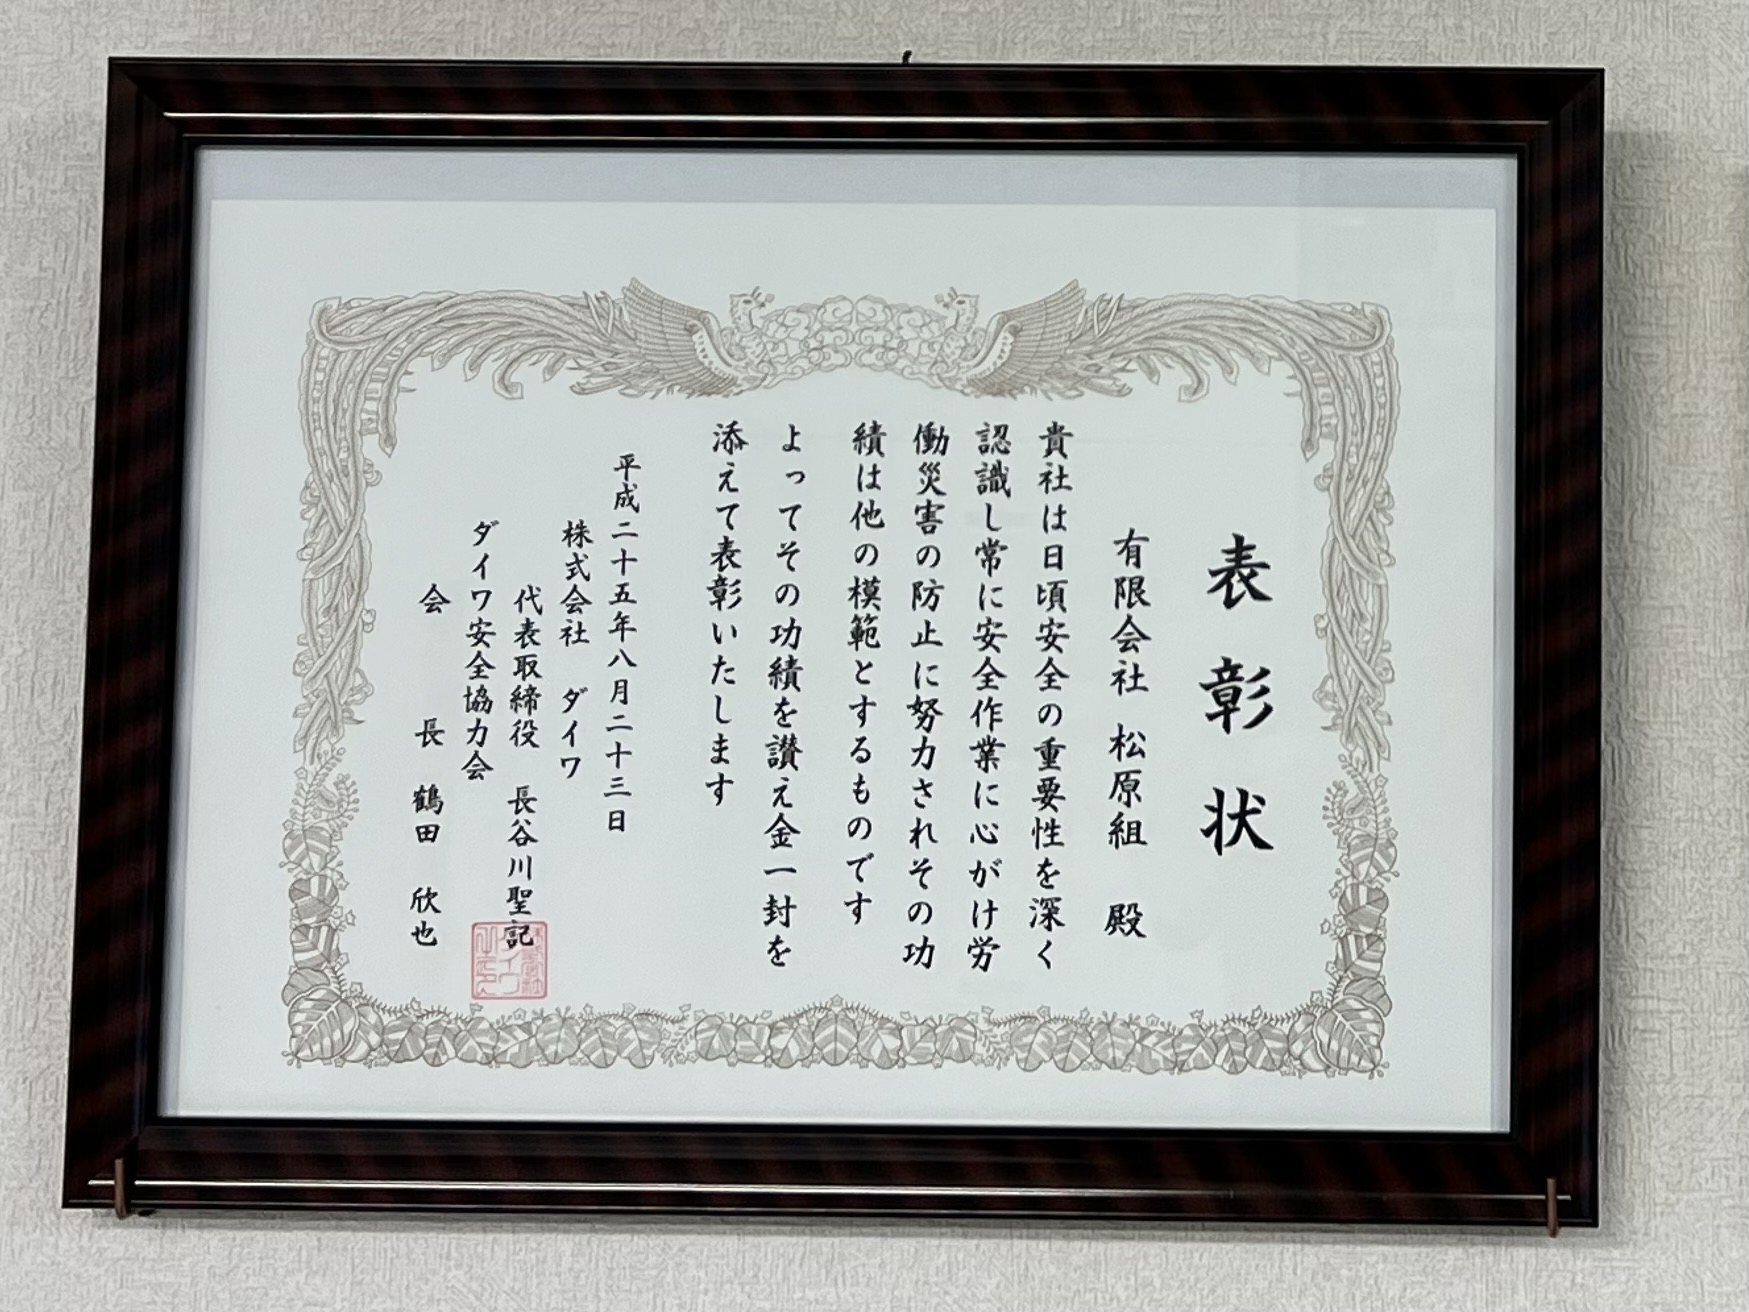 表彰状
有限会社 松原組 殿
貴社は日頃安全の重要性を深く
認識し常に安全作業に心がけ労
働災害の防止に努力されその功
績は他の模範とするものです
よってその功績を讃え金一封を
添えて表彰いたします
平成二十五年八月二十三日
株式会社 ダイワ
代表取締役 長谷川聖記
ダイワ安全協力会
会長 鶴田 欣也